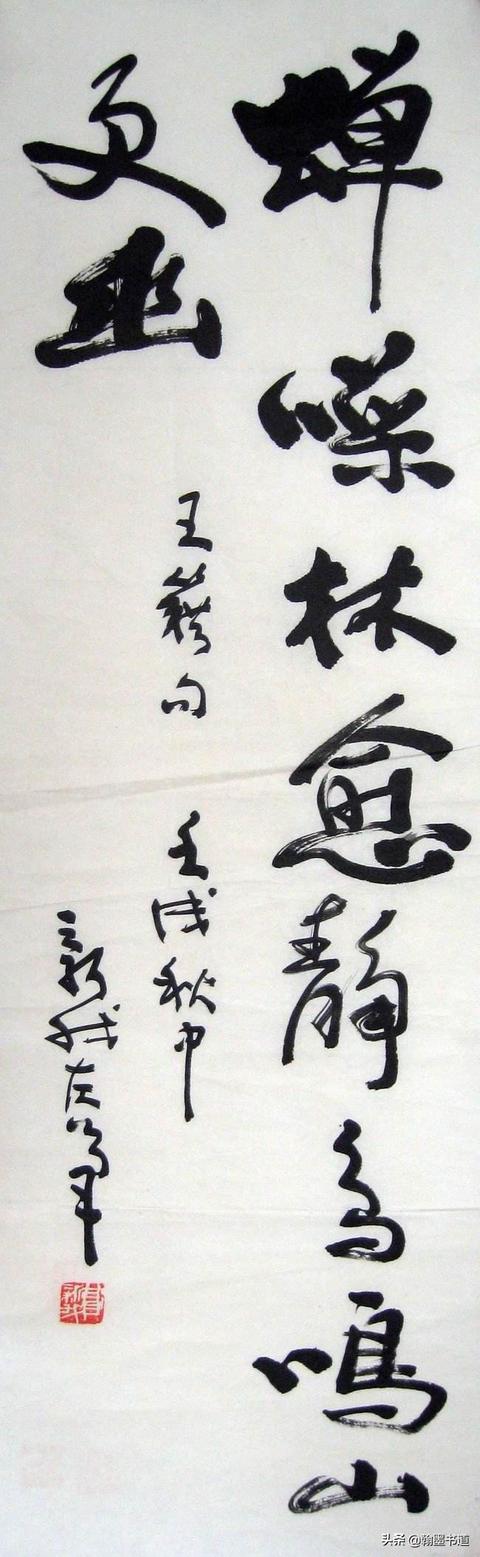 蝉噪林愈静鸟鸣山
更幽
王籍句 壬戌秋中
新我左笔
头条 @翰墨书道